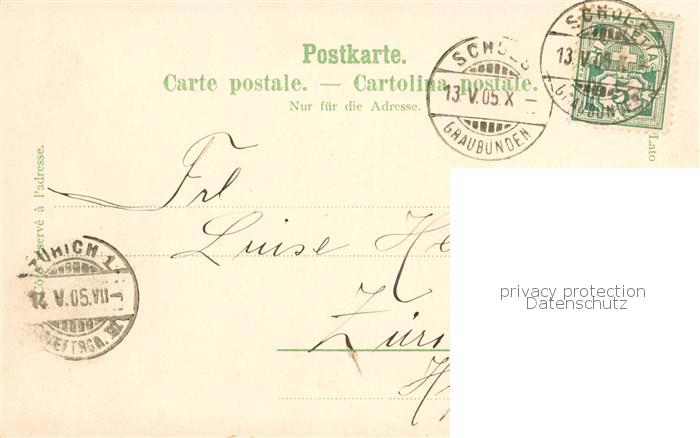 Postkarte.
Carte postale. — Cartolina postale.
Nur für die Adresse.
SCHULS
13.V.05.X
GRAUBÜNDEN
SCHULS
13.V.05.X
GRAUBÜNDEN
5
Côté réservé à l'adresse.
Lato
Frl
Luise He
Züri
ZÜRICH 1
V.05
privacy protection
Datenschutz